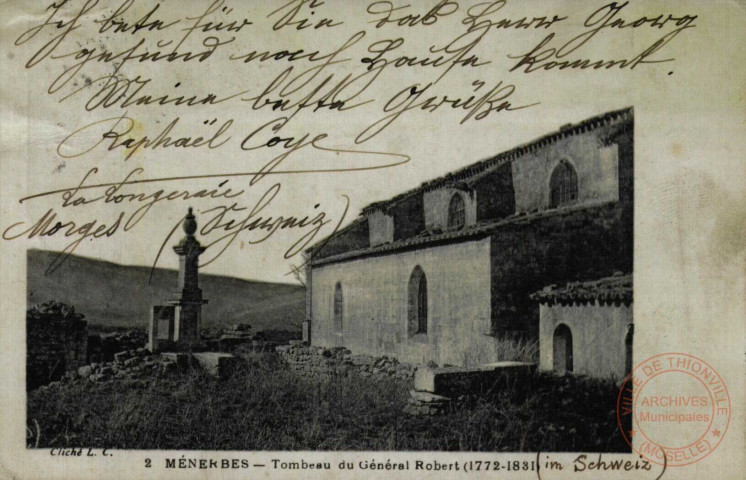 Ich bete für Sie das Herr Georg
gesund nach Hause kommt.
Meine beste Grüße
Raphaël Coye
La Longeraie
Morges (Schweiz)
Cliché L. C.
2 MÉNERBES — Tombeau du Général Robert (1772-1831) (im Schweiz)
VILLE DE THIONVILLE
ARCHIVES
Municipales
(MOSELLE)